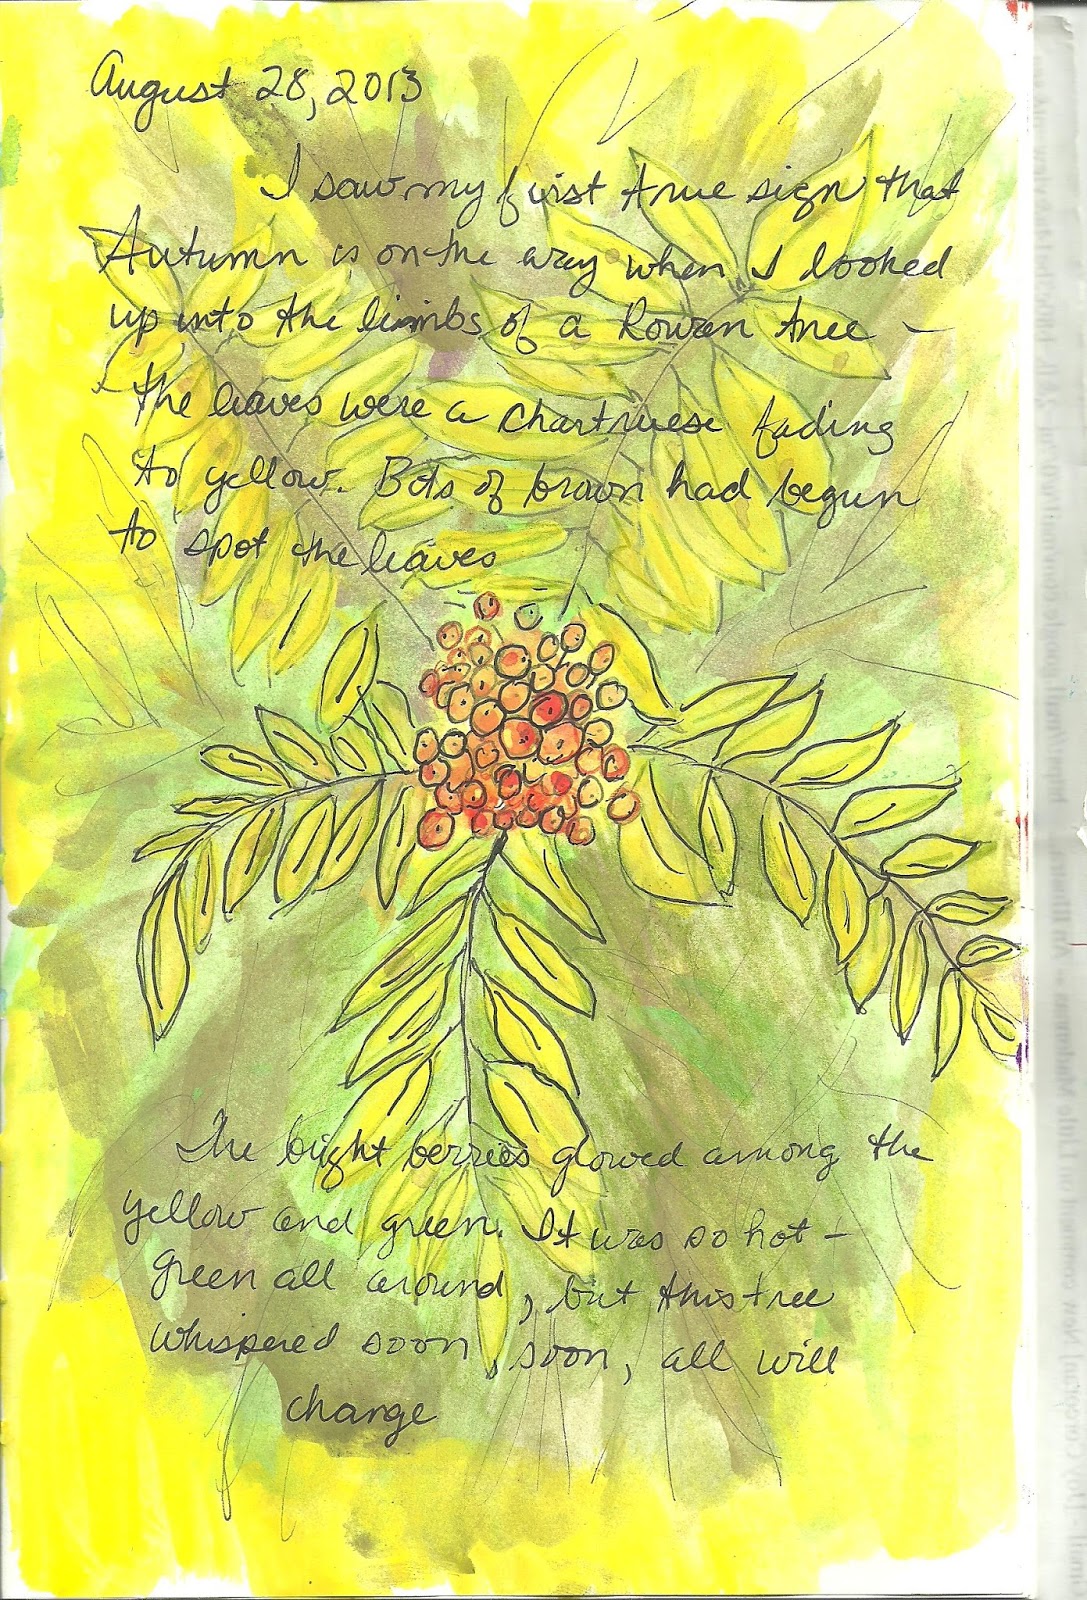 August 28, 2013
I saw my first true sign that
Autumn is on the way when I looked
up into the limbs of a Rowen tree —
the leaves were a chartruese fading
to yellow. Bots of brown had begun
to spot the leaves
The bright berries glowed among the
yellow and green. It was so hot —
green all around, but this tree
whispered soon, soon, all will
change